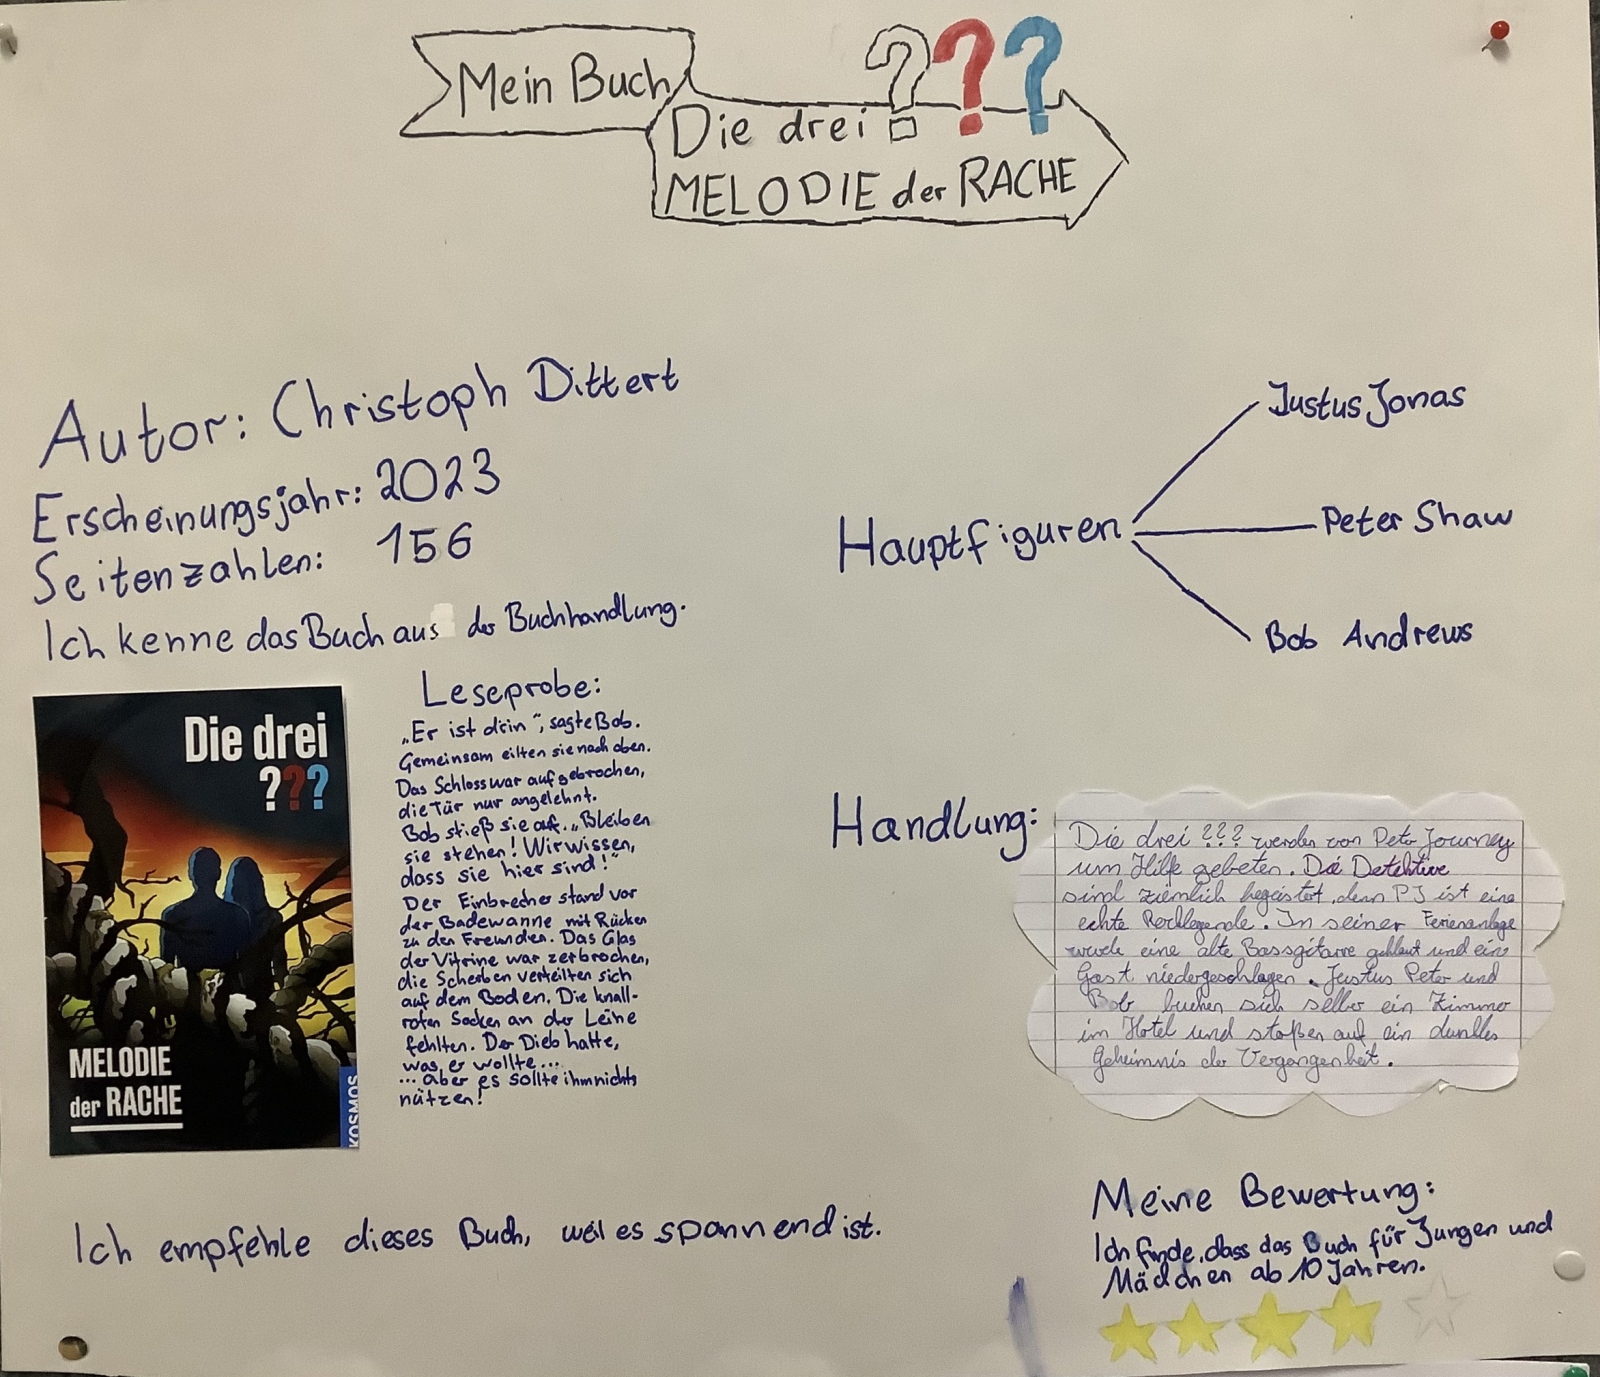 Mein Buch
Die drei ???
MELODIE der RACHE
Autor: Christoph Dittert
Erscheinungsjahr: 2023
Seitenzahlen: 156
Ich kenne das Buch aus der Buchhandlung.
Die drei
???
MELODIE
der RACHE
KOSMOS
Leseprobe:
„Er ist drin“, sagte Bob.
Gemeinsam eilten sie nach oben.
Das Schloss war aufgebrochen,
die Tür nur angelehnt.
Bob stieß sie auf. „Bleiben
sie stehen! Wir wissen,
dass sie hier sind!“
Der Einbrecher stand vor
der Badewanne mit Rücken
zu den Freunden. Das Glas
der Vitrine war zerbrochen,
die Scherben verteilten sich
auf dem Boden. Die knall-
roten Socken an der Leine
fehlten. Der Dieb hatte,
was er wollte...
... aber es sollte ihm nichts
nützen!
Ich empfehle dieses Buch, weil es spannend ist.
Hauptfiguren
Justus Jonas
Peter Shaw
Bob Andrews
Handlung:
Die drei ??? werden von Peter Journey
um Hilfe gebeten. Die Detektive
sind ziemlich begeistert, denn PJ ist eine
echte Rocklegende. In seiner Ferienanlage
wurde eine alte Bassgitarre geklaut und ein
Gast niedergeschlagen. Justus Peter und
Bob buchen sich selber ein Zimmer
im Hotel und stoßen auf ein dunkles
Geheimnis der Vergangenheit.
Meine Bewertung:
Ich finde, dass das Buch für Jungen und
Mädchen ab 10 Jahren.